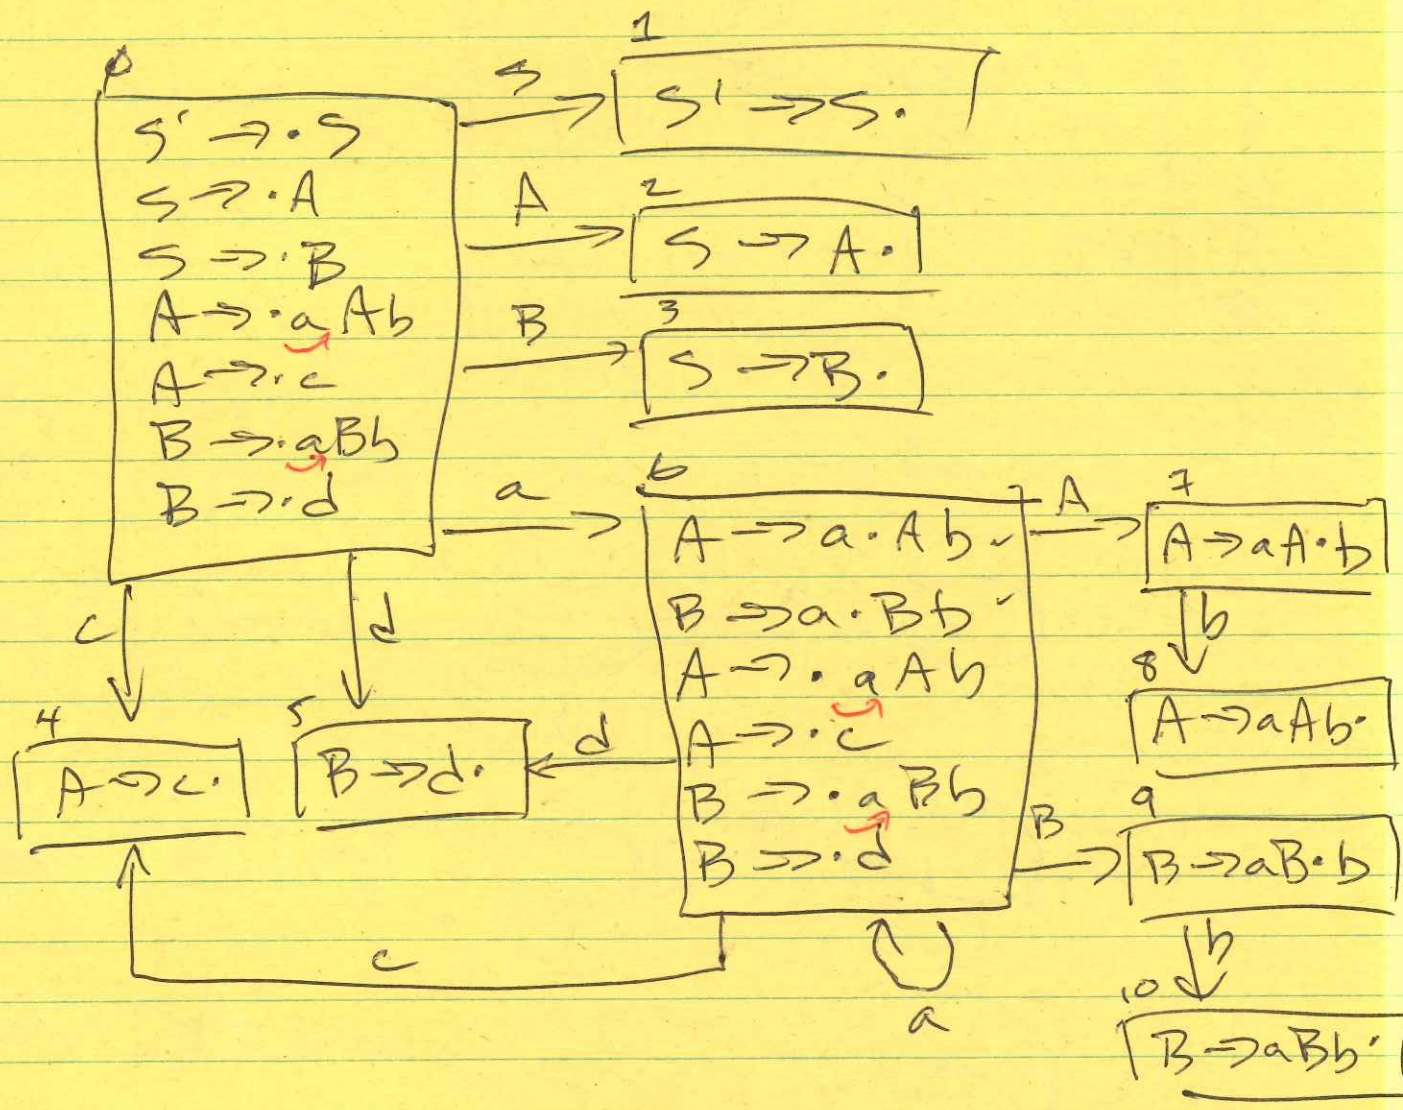 0
S' → ·S
S → ·A
S → ·B
A → ·aAb
A → ·c
B → ·aBb
B → ·d
S
1
S' → S·
A
2
S → A·
B
3
S → B·
a
6
A → a·Ab ✓
B → a·Bb ✓
A → ·aAb
A → ·c
B → ·aBb
B → ·d
A
7
A → aA·b
b
8
A → aAb·
B
9
B → aB·b
b
10
B → aBb·
c
d
4
A → c·
5
B → d·
d
c
a